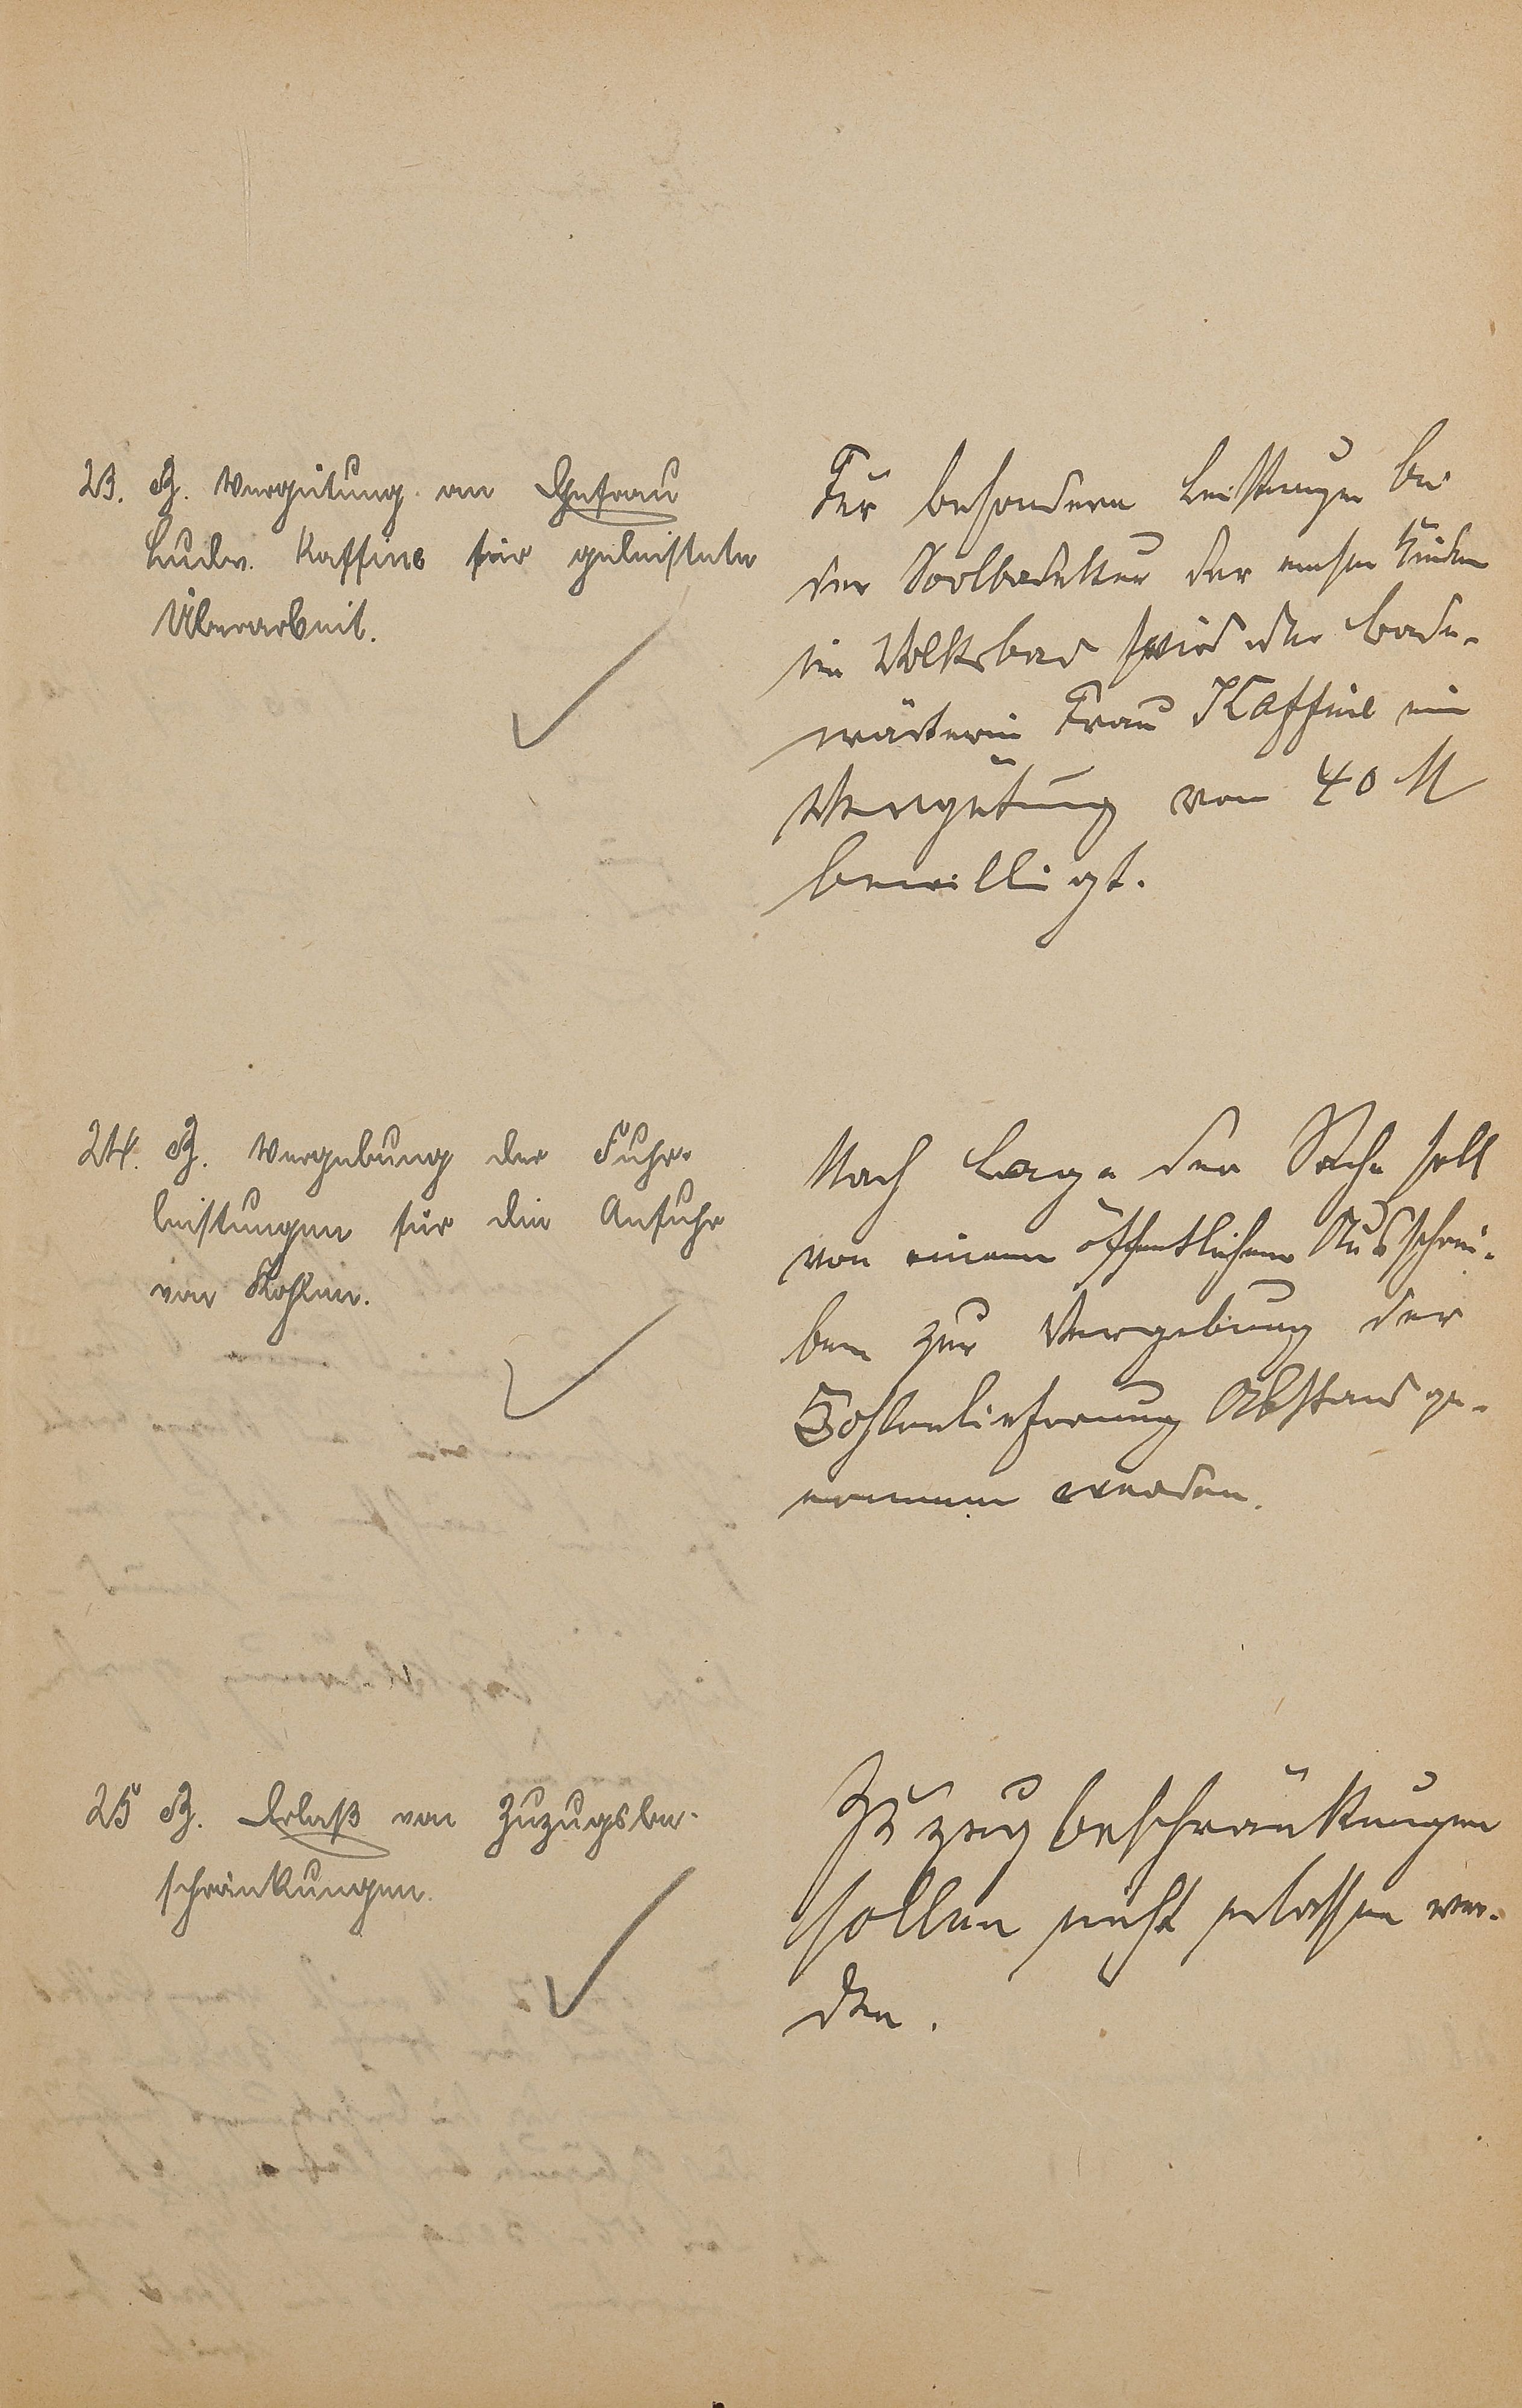 23. B. Vergütung an Ehefrau
Ludw. Kaffine für geleistete
Überarbeit.
Für besondere Leistungen bei
der Soolbadekur der armen Kinder
im Volksbad wird der Bade-
wärterin Frau Kaffine eine
Vergütung von 40 M
bewilligt.
24. B. Vergebung der Fuhr-
leistungen für die Anfuhr
von Kohlen.
Nach Lage der Sache soll
von einem öffentlichen Ausschrei-
ben zur Vergebung der
Kohlenlieferung Abstand ge-
nommen werden.
25 B. Erlaß von Zuzugsbe-
schränkungen.
Zuzugbeschränkungen
sollen nicht erlassen wer-
den.